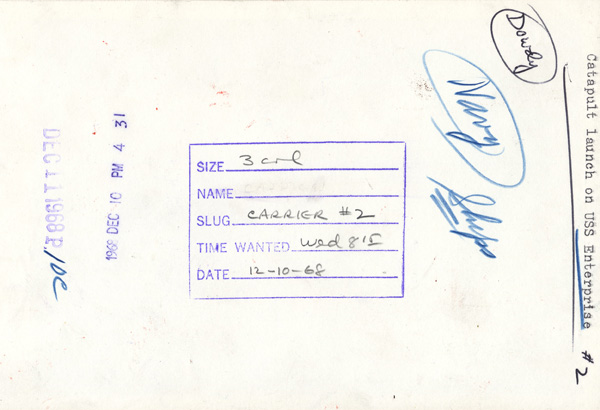 Catapult launch on USS Enterprise #2
Dowdy
Navy
Ships
SIZE 3 col
NAME
SLUG CARRIER #2
TIME WANTED wed 8'S
DATE 12-10-68
1968 DEC 10 PM 4 31
DEC 11 1968